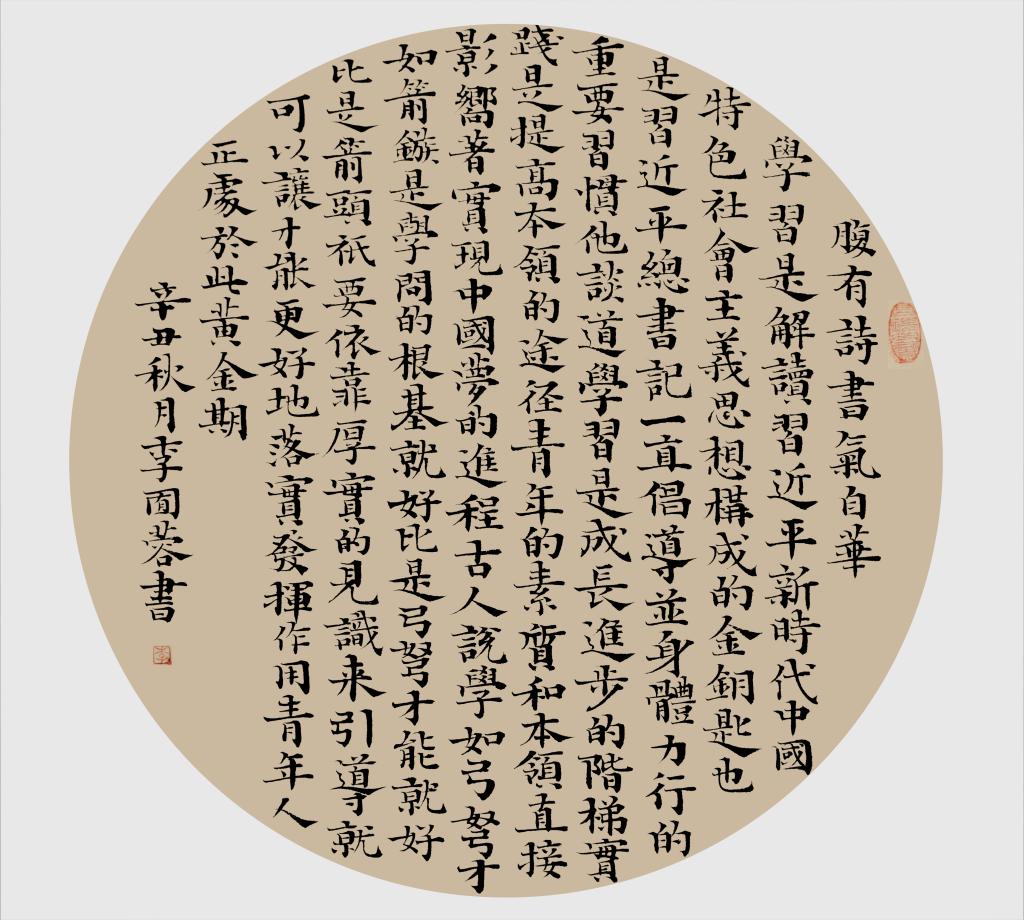 腹有詩書氣自華
學習是解讀習近平新時代中國
特色社會主義思想構成的金銅匙也
是習近平總書記一直倡導並身體力行的
重要習慣他談道學習是成長進步的階梯實
踐是提高本領的途径青年的素質和本領直接
影嚮著實現中國夢的進程古人說學如弓弩才
如箭鏃是學問的根基就好比是弓弩才能就好
比是箭頭衹要依靠厚實的見識来引導就
可以讓才能更好地落實發揮作用青年人
正處於此黃金期
辛丑秋月李面蓉書